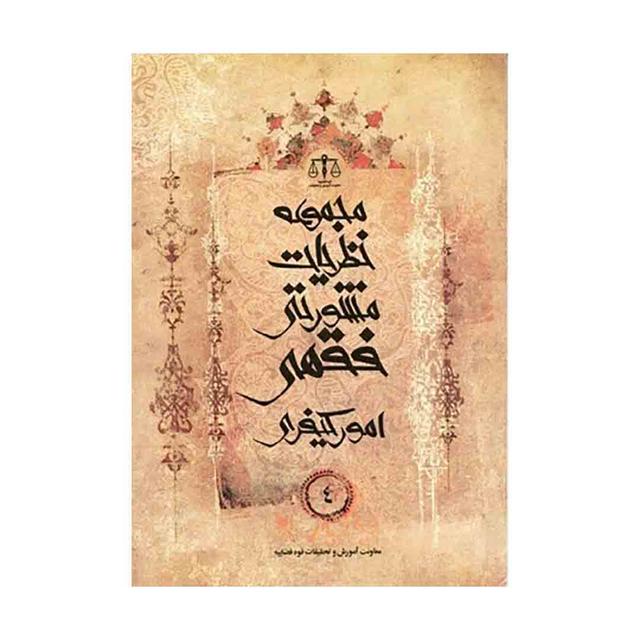 مجموعه
نظریات
مشورتی
فقهی
امور کیفری
٤
معاونت آموزش و تحقیقات قوه قضاییه